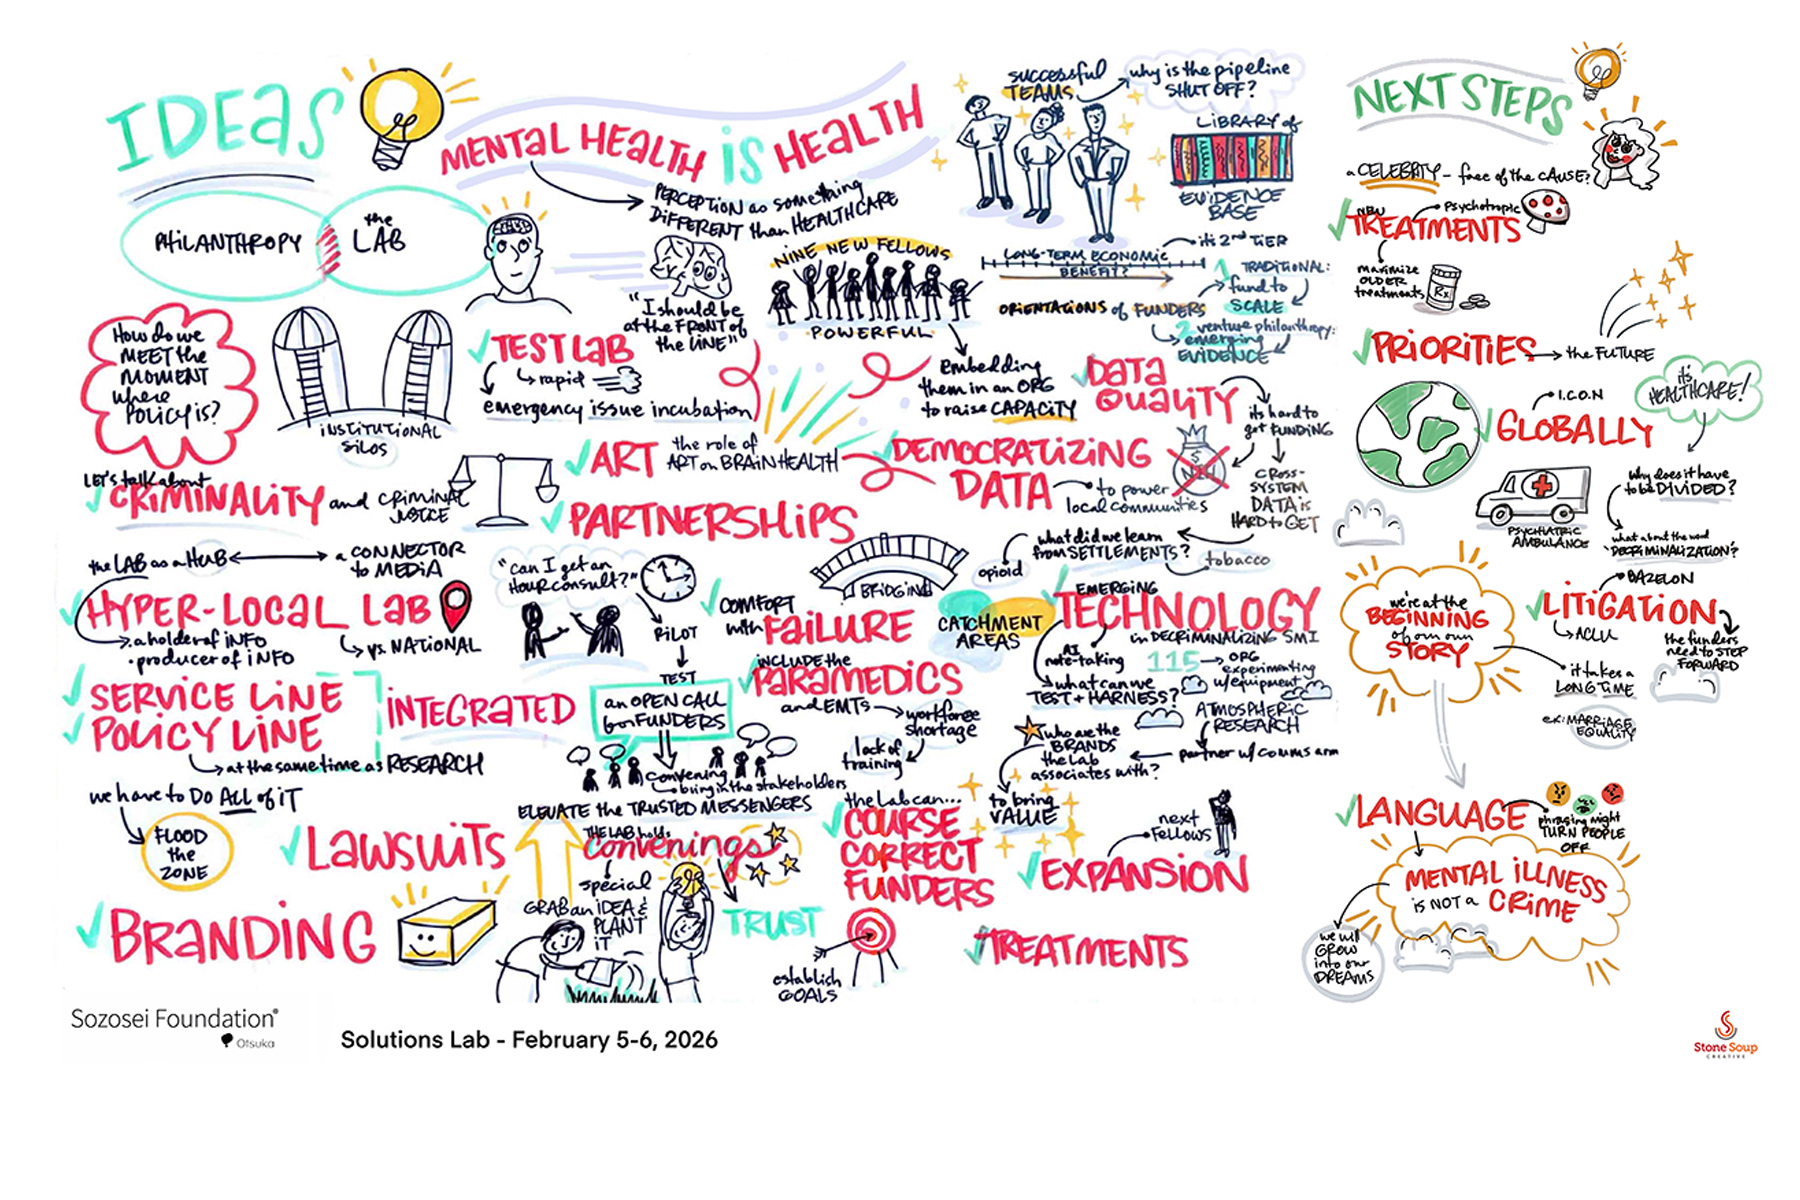 IDEAS
MENTAL HEALTH is HEALTH
PERCEPTION as something
DIFFERENT than HEALTHCARE
PHILANTHROPY
the
LAB
"I should be
at the FRONT of
the LINE"
How do we
MEET the
MOMENT
where
POLICY is?
INSTITUTIONAL
SILOS
TEST LAB
rapid
emergency issue incubation
NINE NEW FELLOWS
POWERFUL
embedding
them in an ORG
to raise CAPACITY
SUCCESSFUL
TEAMS
why is the pipeline
SHUT OFF?
LIBRARY of
EVIDENCE
BASE
LONG-TERM ECONOMIC
BENEFIT?
it's 2nd TIER
ORIENTATIONS of FUNDERS
1 TRADITIONAL:
fund to
SCALE
2 venture philanthropy:
emerging
EVIDENCE
DATA
QUALITY
it's hard to
get FUNDING
CROSS-
SYSTEM
DATA is
HARD to GET
LET'S talk about
CRIMINALITY and CRIMINAL
JUSTICE
ART the role of
ART on BRAIN HEALTH
DEMOCRATIZING
DATA
to power
local communities
$
NIH
PARTNERSHIPS
BRIDGING
what did we learn
from SETTLEMENTS?
opioid
tobacco
the LAB as a HUB
a CONNECTOR
to MEDIA
HYPER-LOCAL LAB
a holder of INFO
• producer of INFO
vs. NATIONAL
"can I get an
HOUR consult?"
PILOT
TEST
an OPEN CALL
for FUNDERS
convening
bring in the stakeholders
COMFORT
with FAILURE
CATCHMENT
AREAS
EMERGING
TECHNOLOGY
in DECRIMINALIZING SMI
AI
note-taking
115 ORG
experimenting
w/equipment
what can we
TEST + HARNESS?
ATMOSPHERIC
RESEARCH
partner w/ comms arm
who are the
BRANDS
the Lab
associates with?
to bring
VALUE
INCLUDE the
PARAMEDICS
and EMTS
workforce
shortage
lack of
training
SERVICE LINE
POLICY LINE
INTEGRATED
at the same time as RESEARCH
we have to DO ALL of IT
FLOOD
the
ZONE
LAWSUITS
ELEVATE the TRUSTED MESSENGERS
THE LAB holds
convenings
special
GRAB an IDEA &
PLANT
IT
TRUST
the Lab can...
COURSE
CORRECT
FUNDERS
establish
GOALS
next
FELLOWS
EXPANSION
BRANDING
TREATMENTS
NEXT STEPS
a CELEBRITY - face of the CAUSE?
NEW
TREATMENTS
Psychotropic
maximize
OLDER
treatments
Rx
PRIORITIES
the FUTURE
I.C.O.N
GLOBALLY
it's
HEALTHCARE!
why does it have
to be DIVIDED?
PSYCHIATRIC
AMBULANCE
what about the word
'DECRIMINALIZATION'?
we're at the
BEGINNING
of our own
STORY
BAZELON
LITIGATION
ACLU
the funders
need to STEP
FORWARD
it takes a
LONG TIME
ex: MARRIAGE
EQUALITY
LANGUAGE
phrasing might
TURN PEOPLE
OFF
MENTAL ILLNESS
is NOT a CRIME
we will
GROW
into our
DREAMS
Sozosei Foundation®
Otsuka
Solutions Lab - February 5-6, 2026
Stone Soup
CREATIVE